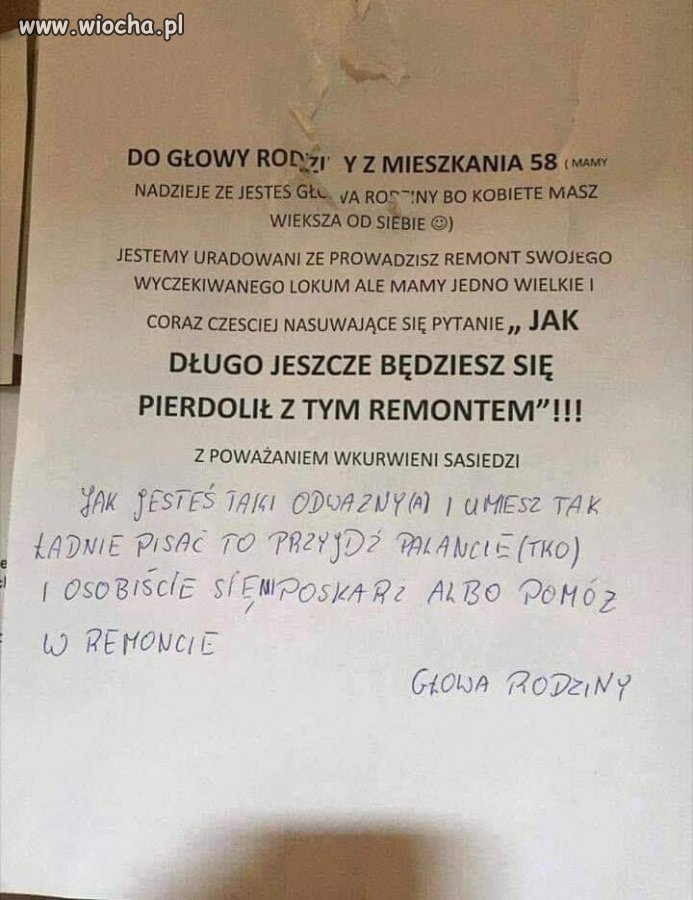 www.wiocha.pl
DO GŁOWY RODZI Y Z MIESZKANIA 58 ( MAMY
NADZIEJE ZE JESTES GŁO VA RODZINY BO KOBIETE MASZ
WIEKSZA OD SIEBIE ☺)
JESTEMY URADOWANI ZE PROWADZISZ REMONT SWOJEGO
WYCZEKIWANEGO LOKUM ALE MAMY JEDNO WIELKIE I
CORAZ CZESCIEJ NASUWAJĄCE SIĘ PYTANIE „ JAK
DŁUGO JESZCZE BĘDZIESZ SIĘ
PIERDOLIŁ Z TYM REMONTEM”!!!
Z POWAŻANIEM WKURWIENI SASIEDZI
JAK JESTEŚ TAKI ODWAŻNY(A) I UMIESZ TAK
ŁADNIE PISAĆ TO PRZYJDŹ PALANCIE(TKO)
I OSOBIŚCIE SIĘ POSKARŻ ALBO POMÓŻ
W REMONCIE
GŁOWA RODZINY